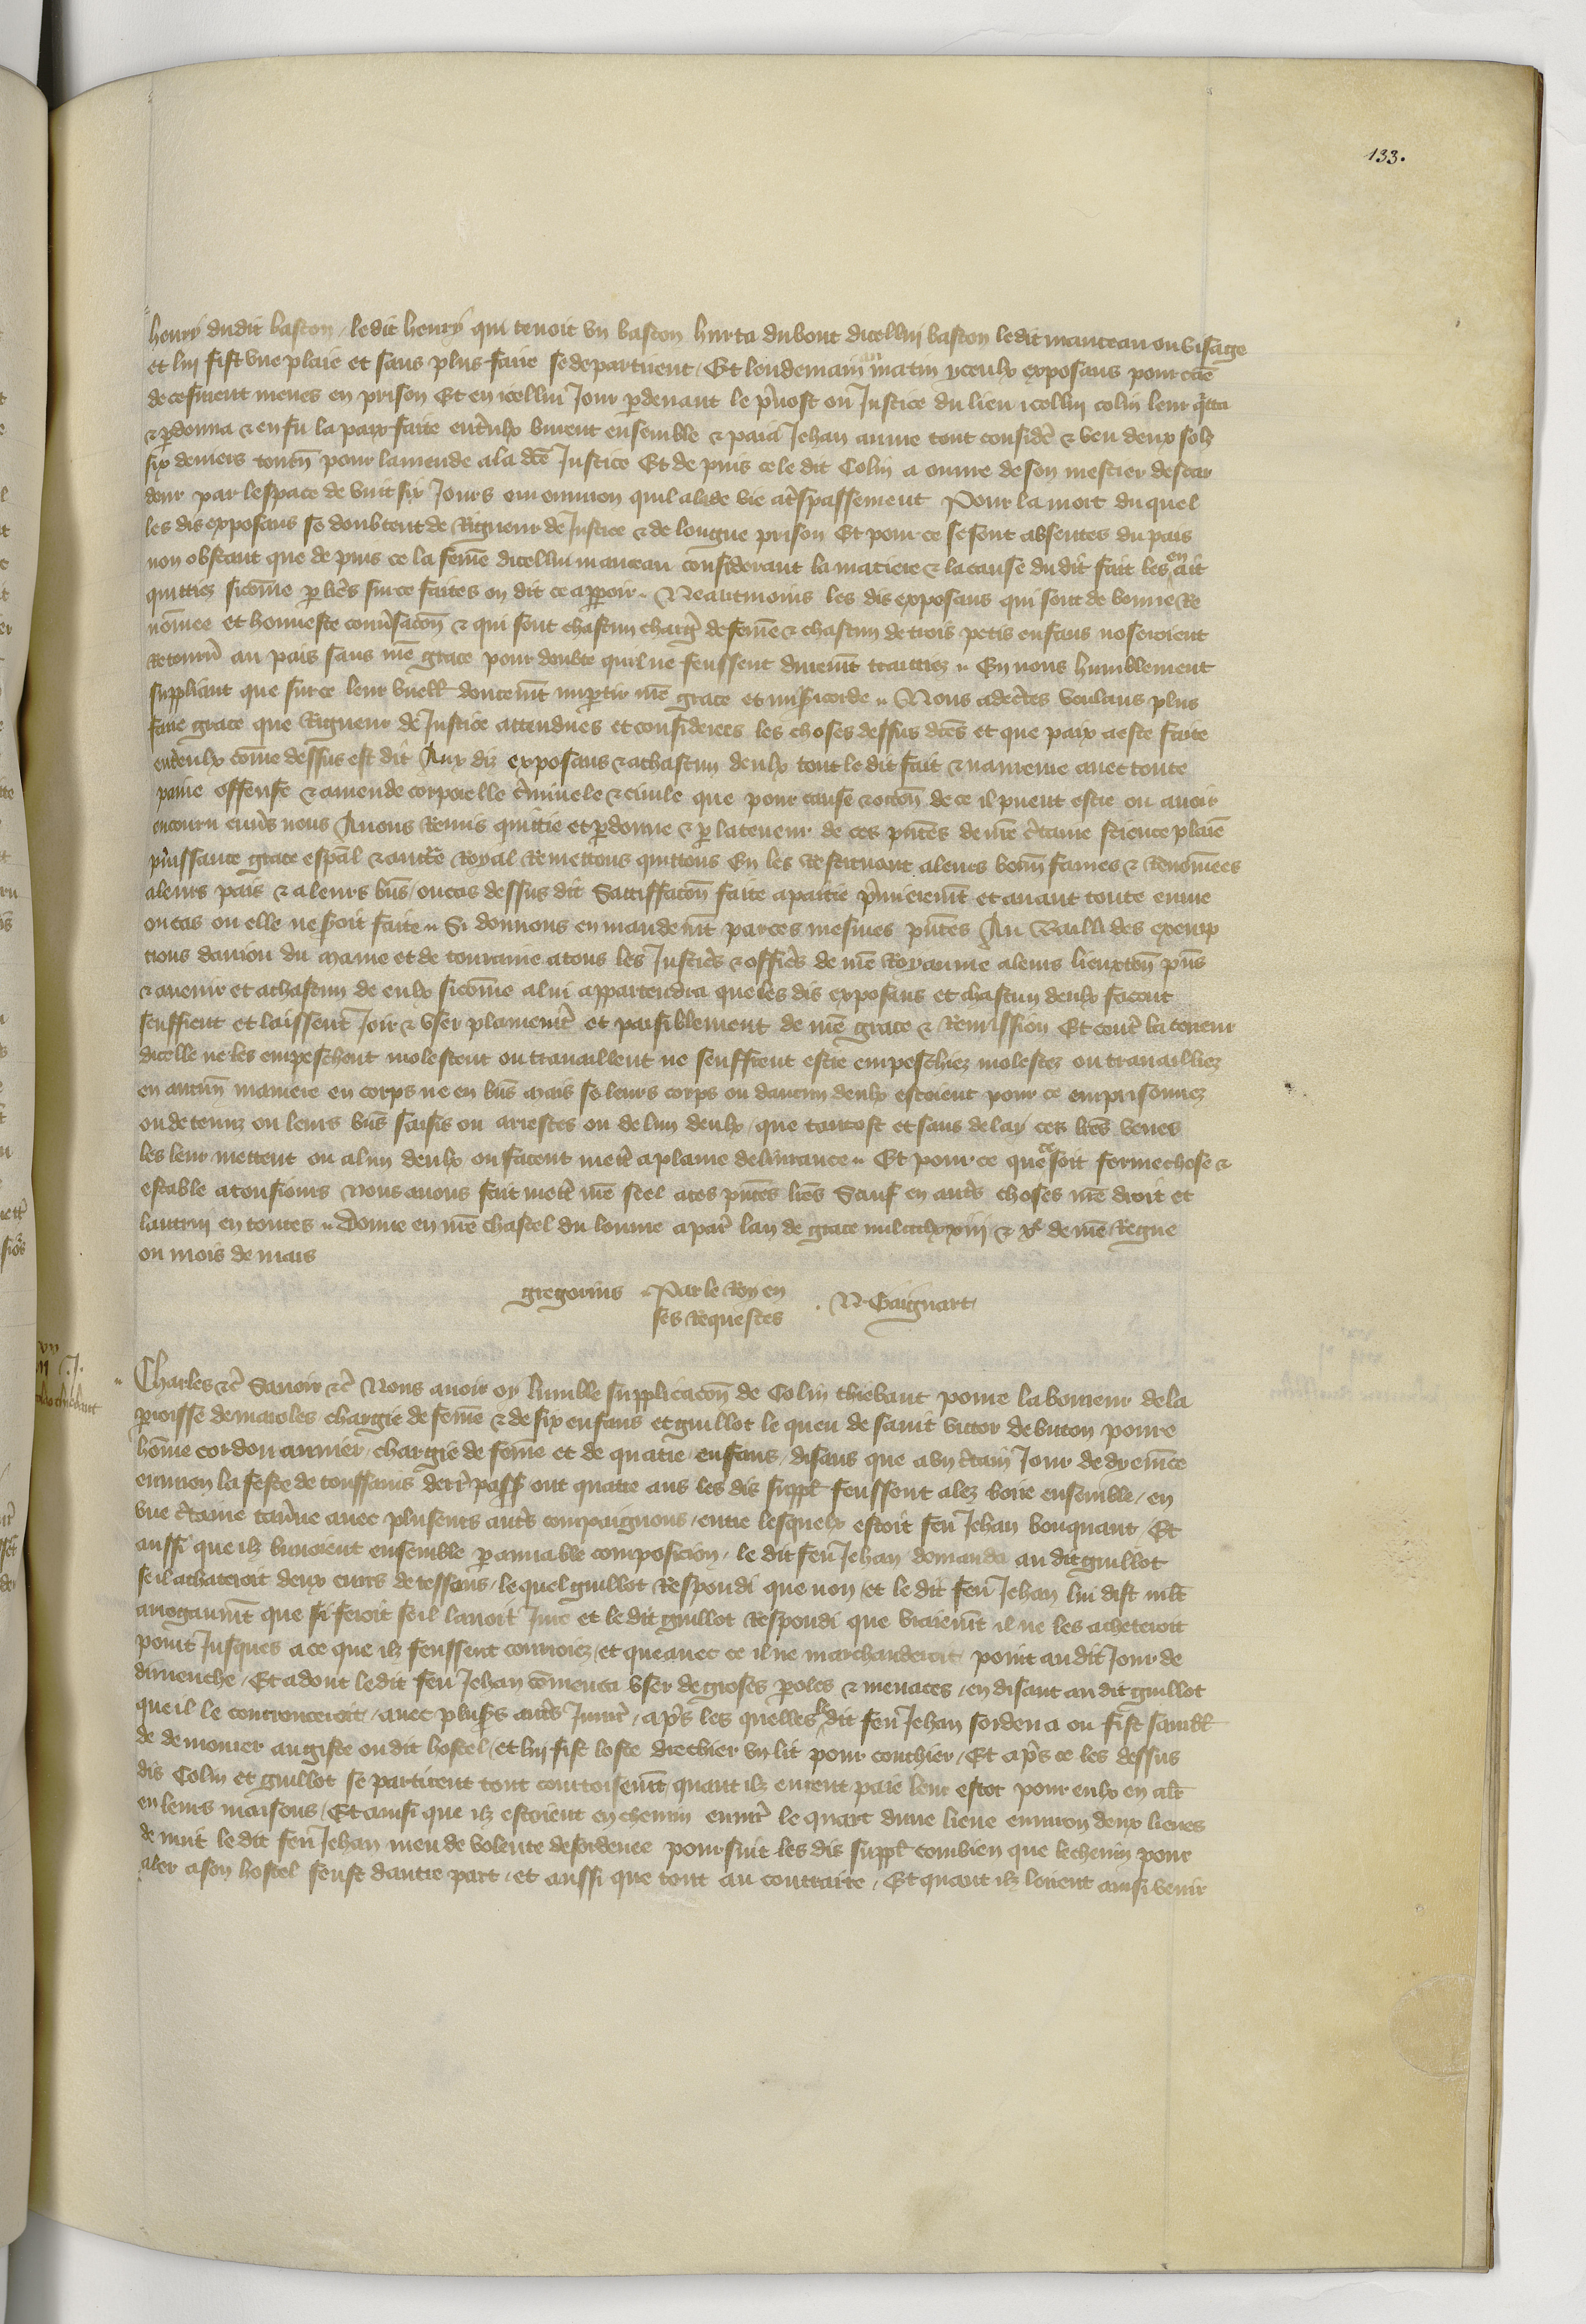 133.
henry dudit baston / ledit henry qui tenoit un baston hurta du bout dicellui baston ledit manceau ou visage
et lui fist une plaie et sans plus faire se departirent / Et lendemain au matin yceulx exposans pour cause
de ce furent menes en prison Et en icellui Jour pdevant le pvost ou Justice du lieu icellui colin leur qitta
& pdonna & en fu la paix faite entreulx burent ensemble & paia Jehan aume tout considere & veu deux solz
six deniers tourn pour lamende a la dce Justice Et depuis ce le dit Colin a ouvre de son mestier de
dour par lespace de vint six Jours ou environ quil ala de vie a trespassement Pour la mort du quel
les dis exposans se doubtent de Rigueur de Justice & de longue prison Et pour ce se sont absentes du pais
non obstant que depuis ce la feme dicellui manceau considerant la matiere & la cause du dit fait les en ait
quittiez sicome p lres sur ce faites on dit ce apparoir .. Neantmoins les dis exposans qui sont de bonne Re
nomee et honneste convsacon & qui sont chascun charge de feme & chascun de trois petis enfans noseroient
Retourn au pais sans nre grace pour doubte quil ne feussent durement traittiez .. En nous humblement
suppliant que sur ce leur vueill doucemt impartir nre grace et misicorde .. Nous adecertes voulans plus
faire grace que Rigueur de Justice attendues et considerees les choses dessus dces et que paix a este faite
entreulx come dessus est dit Aux diz exposans & a chascun deulx tout le dit fait & navreure avec toute
paine offense & amende corporelle criminele & civile que pour cause & occon de ce il puent estre ou avoir
encouru envs nous Avons Remis quittie et pdonne & p la teneur de ces pntes de nre ctaine science plaine
puissance grace espal & auctte Royal Remettons quittons En les Restituant a leurs bonn fames & Renomees
a leurs pais & a leurs bns / ou cas dessus dit Satisfacon faite a partie premierement et avant toute euvre
ou cas ou elle ne seroit faite .. Si donnons en mandemt par ces mesmes pntes Au Bailli des exemp
cions danjou du maine et de touraine a tous les Justics & offics de nre Royaume a leurs lieuxten pns
& avenir et a chascun de eulx sicome a lui appartendra que les dis exposans et chascun deulx facent
seuffrent et laissent Joir & user plainement et paisiblement de nre grace & Remission Et contre la teneur
dicelle ne les empeschent molestent ou travaillent ne seuffrent estre empeschiez molestez ou travailliez
en aucune maniere en corps ne en bns mais se leurs corps ou daucun deulx estoient pour ce emprisonnez
ou detenuz ou leurs bns saisis ou arrestes ou de lun deulx / que tantost et sans delay ces lres veues
les leur mettent ou a lun deulx ou facent mettre a plaine delivrance .. Et pour ce que ce soit ferme chose &
estable a tousiours Nous avons fait mettre nre seel a ces pntes lres Sauf en autrs choses nre droit et
lautrui en toutes .. Donne en nre chastel du louvre a paris lan de grace mil ccc lxxiii & xe de nre Regne
ou mois de mars
gregorius .. Par le Roy en
ses Requestes . N. Gaignart
Charles &c Savoir &c Nous avoir oy lumble supplicacon de Colin thiebaut povre laboureur de la
proisse de maroles chargie de feme & de six enfans et guillot le queu de saint victor de buton povre
home cordouannier / chargie de feme et de quatre enfans / disans que a un ctain Jour de dyemence
environ la feste de toussains derr passe ont quatre ans les dis suppl feussent alez boire ensemble / en
une ctaine taverne avec pluseurs autrs compaignons / entre lesquelx estoit feu Jehan bouquant / Et
aussi que ilz buvoient ensemble p amiable composicion / le dit feu Jehan demanda au dit guillot
se il achateroit deux cuirs de tessons / lequel guillot Respondi que non / et le dit feu Jehan lui dist mlt
arrogaumt que si feroit se il lavoit Jure et le dit guillot Respondi que vraiemt il ne les acheteroit
point Jusques a ce que ilz feussent courroiez / et que avec ce il ne marchanderoit point au dit Jour de
dimenche / Et adont ledit feu Jehan comenca user de groses paroles & menaces / en disant au dit guillot
que il le courrouceroit / avec plusrs autrs Jniures / aprs les quelles le dit feu Jehan sordena ou fist semble
de demourer au giste ou dit hostel / et lui fist loste drecier un lit pour couchier / Et aprs ce les dessus
dis Colin et guillot se partirent tout courtoisemt quant ilz eurent paie leur escot pour eulx en aler
en leurs maisons / Et ainsi que ilz estoient en chemin environ le quart dune lieue environ deux lieues
de nuit le dit feu Jehan meu de volente desordenee poursuit les dis suppl combien que le chemin pour
aler a son hostel feust dautre part / et aussi que tout au contraire / Et quant ilz loirent ainsi venir